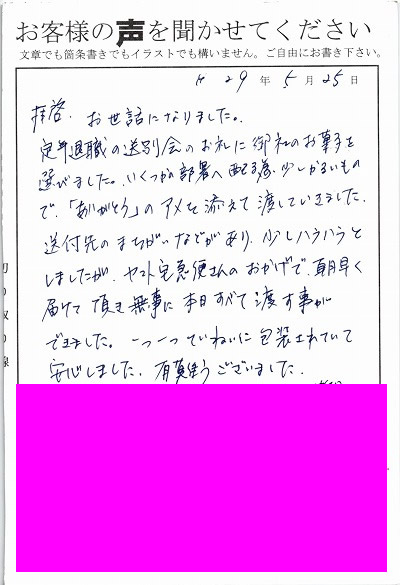 お客様の声を聞かせてください
文章でも箇条書きでもイラストでも構いません。ご自由にお書き下さい。
H 29 年 5 月 25 日
拝啓. お世話になりました。
定年退職の送別会のお礼に御社のお菓子を
選びました。いくつかの部署へ配る為、少しかるいもの
で、「ありがとう」のアメを添えて渡していきました。
送付先のまちがいなどがあり、少しハラハラと
しましたが、ヤマト宅急便さんのおかげで、朝早く
届けて頂き無事に本日すべて渡す事が
できました。一つ一つていねいに包装されていて
安心しました。有難うございました。
切り取り線